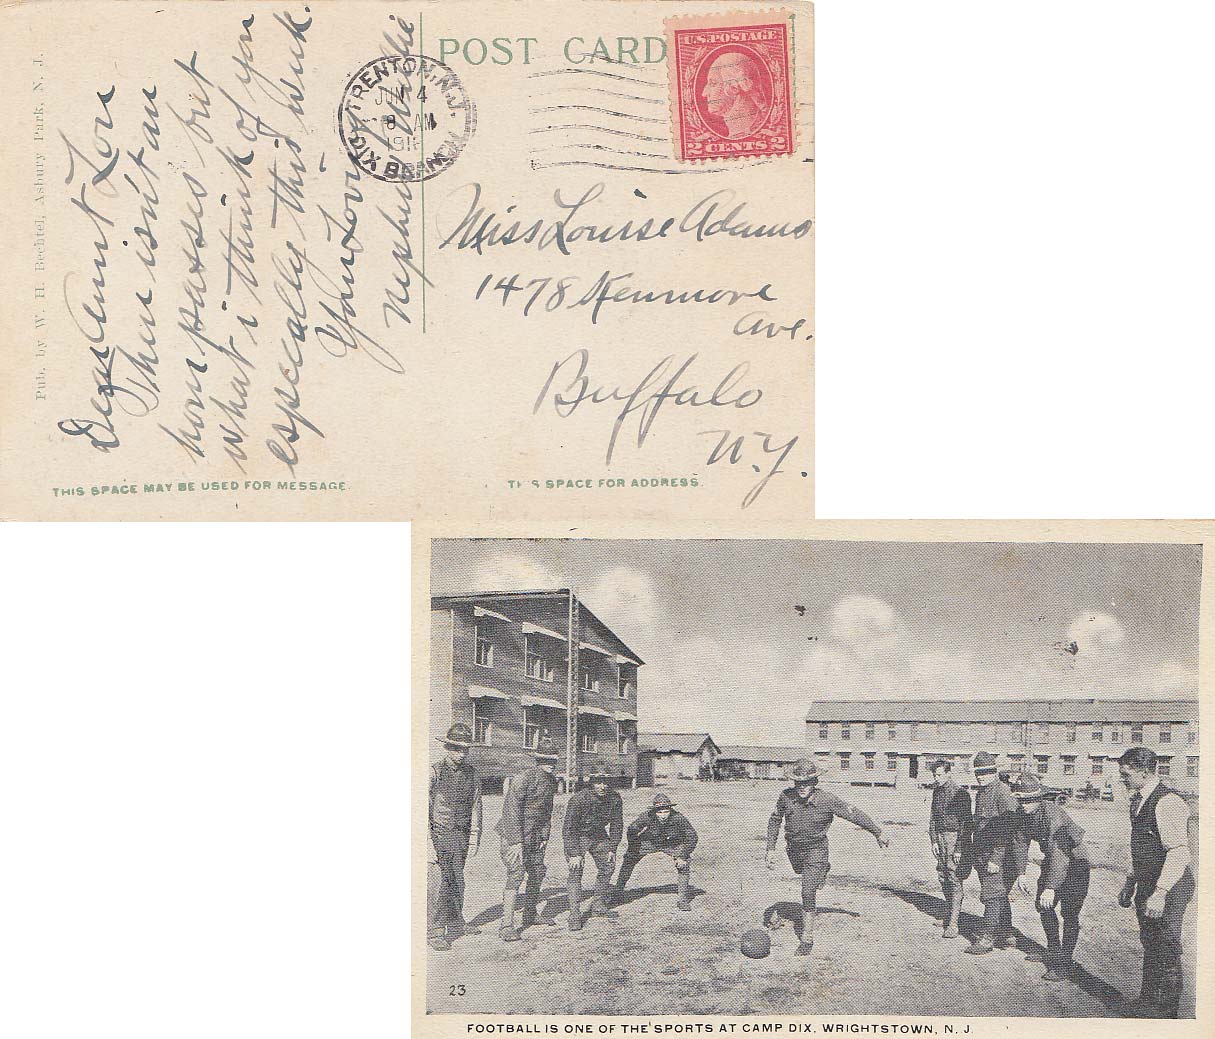 POST CARD
U.S. POSTAGE
2 CENTS 2
TRENTON, N.J.
JUN 4
8 AM
191
DIX BRANCH
Pub. by W. H. Bechtel, Asbury Park, N. J.
Dear Aunt Lou
There isn't an
hour passes but
what i think of you
especally this week.
Your Loving
Nephew Willie
Miss Louise Adams
1478 Kenmore
Ave.
Buffalo
N.Y.
THIS SPACE MAY BE USED FOR MESSAGE.
THIS SPACE FOR ADDRESS.
23
FOOTBALL IS ONE OF THE SPORTS AT CAMP DIX, WRIGHTSTOWN, N. J.